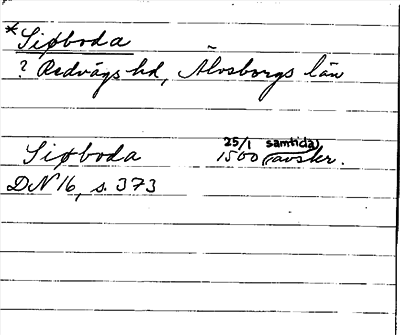 *Sipboda
? Redvägs hd, Älvsborgs län
Sipboda 25/1 1500 (samtida avskr.
DN 16, s. 373